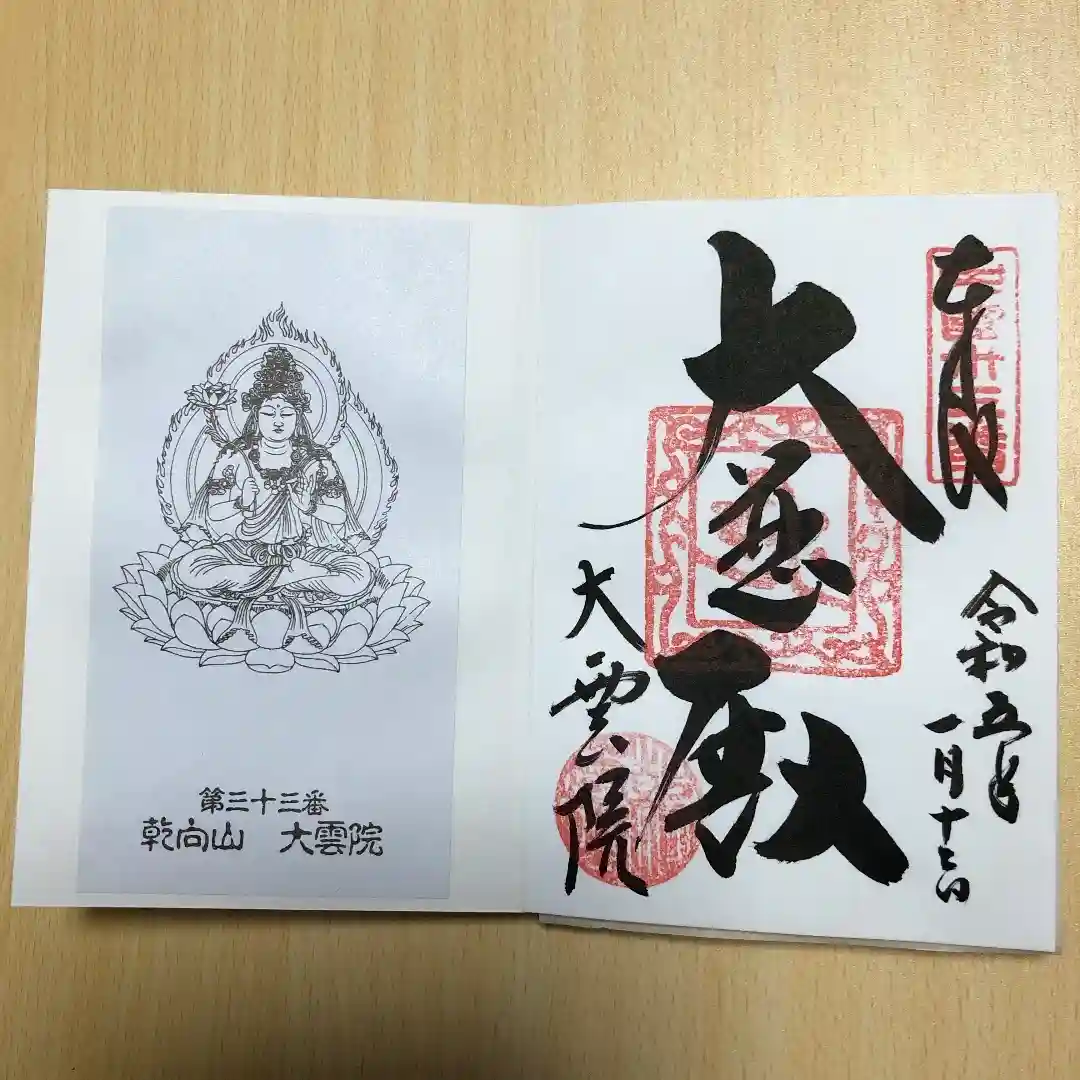 第三十三番
乾向山　大雲院
奉拝
令和五年
一月十七日
大悲殿
大雲院